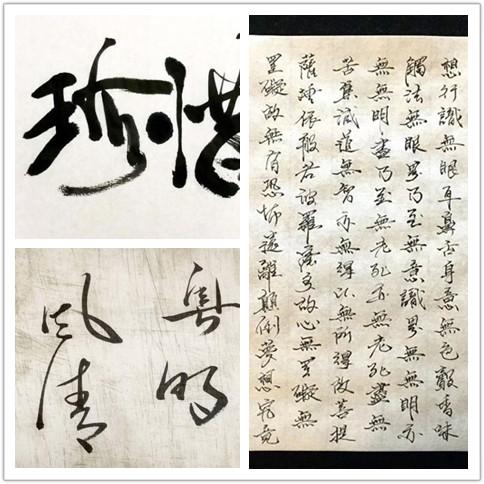 珍惜
明
风清
想行識無眼耳鼻舌身意無色聲香味
觸法無眼界乃至無意識界無無明亦
無無明盡乃至無老死亦無老死盡無
苦集滅道無智亦無得以無所得故菩提
薩埵依般若波羅蜜多故心無罣礙無
罣礙故無有恐怖遠離顛倒夢想究竟